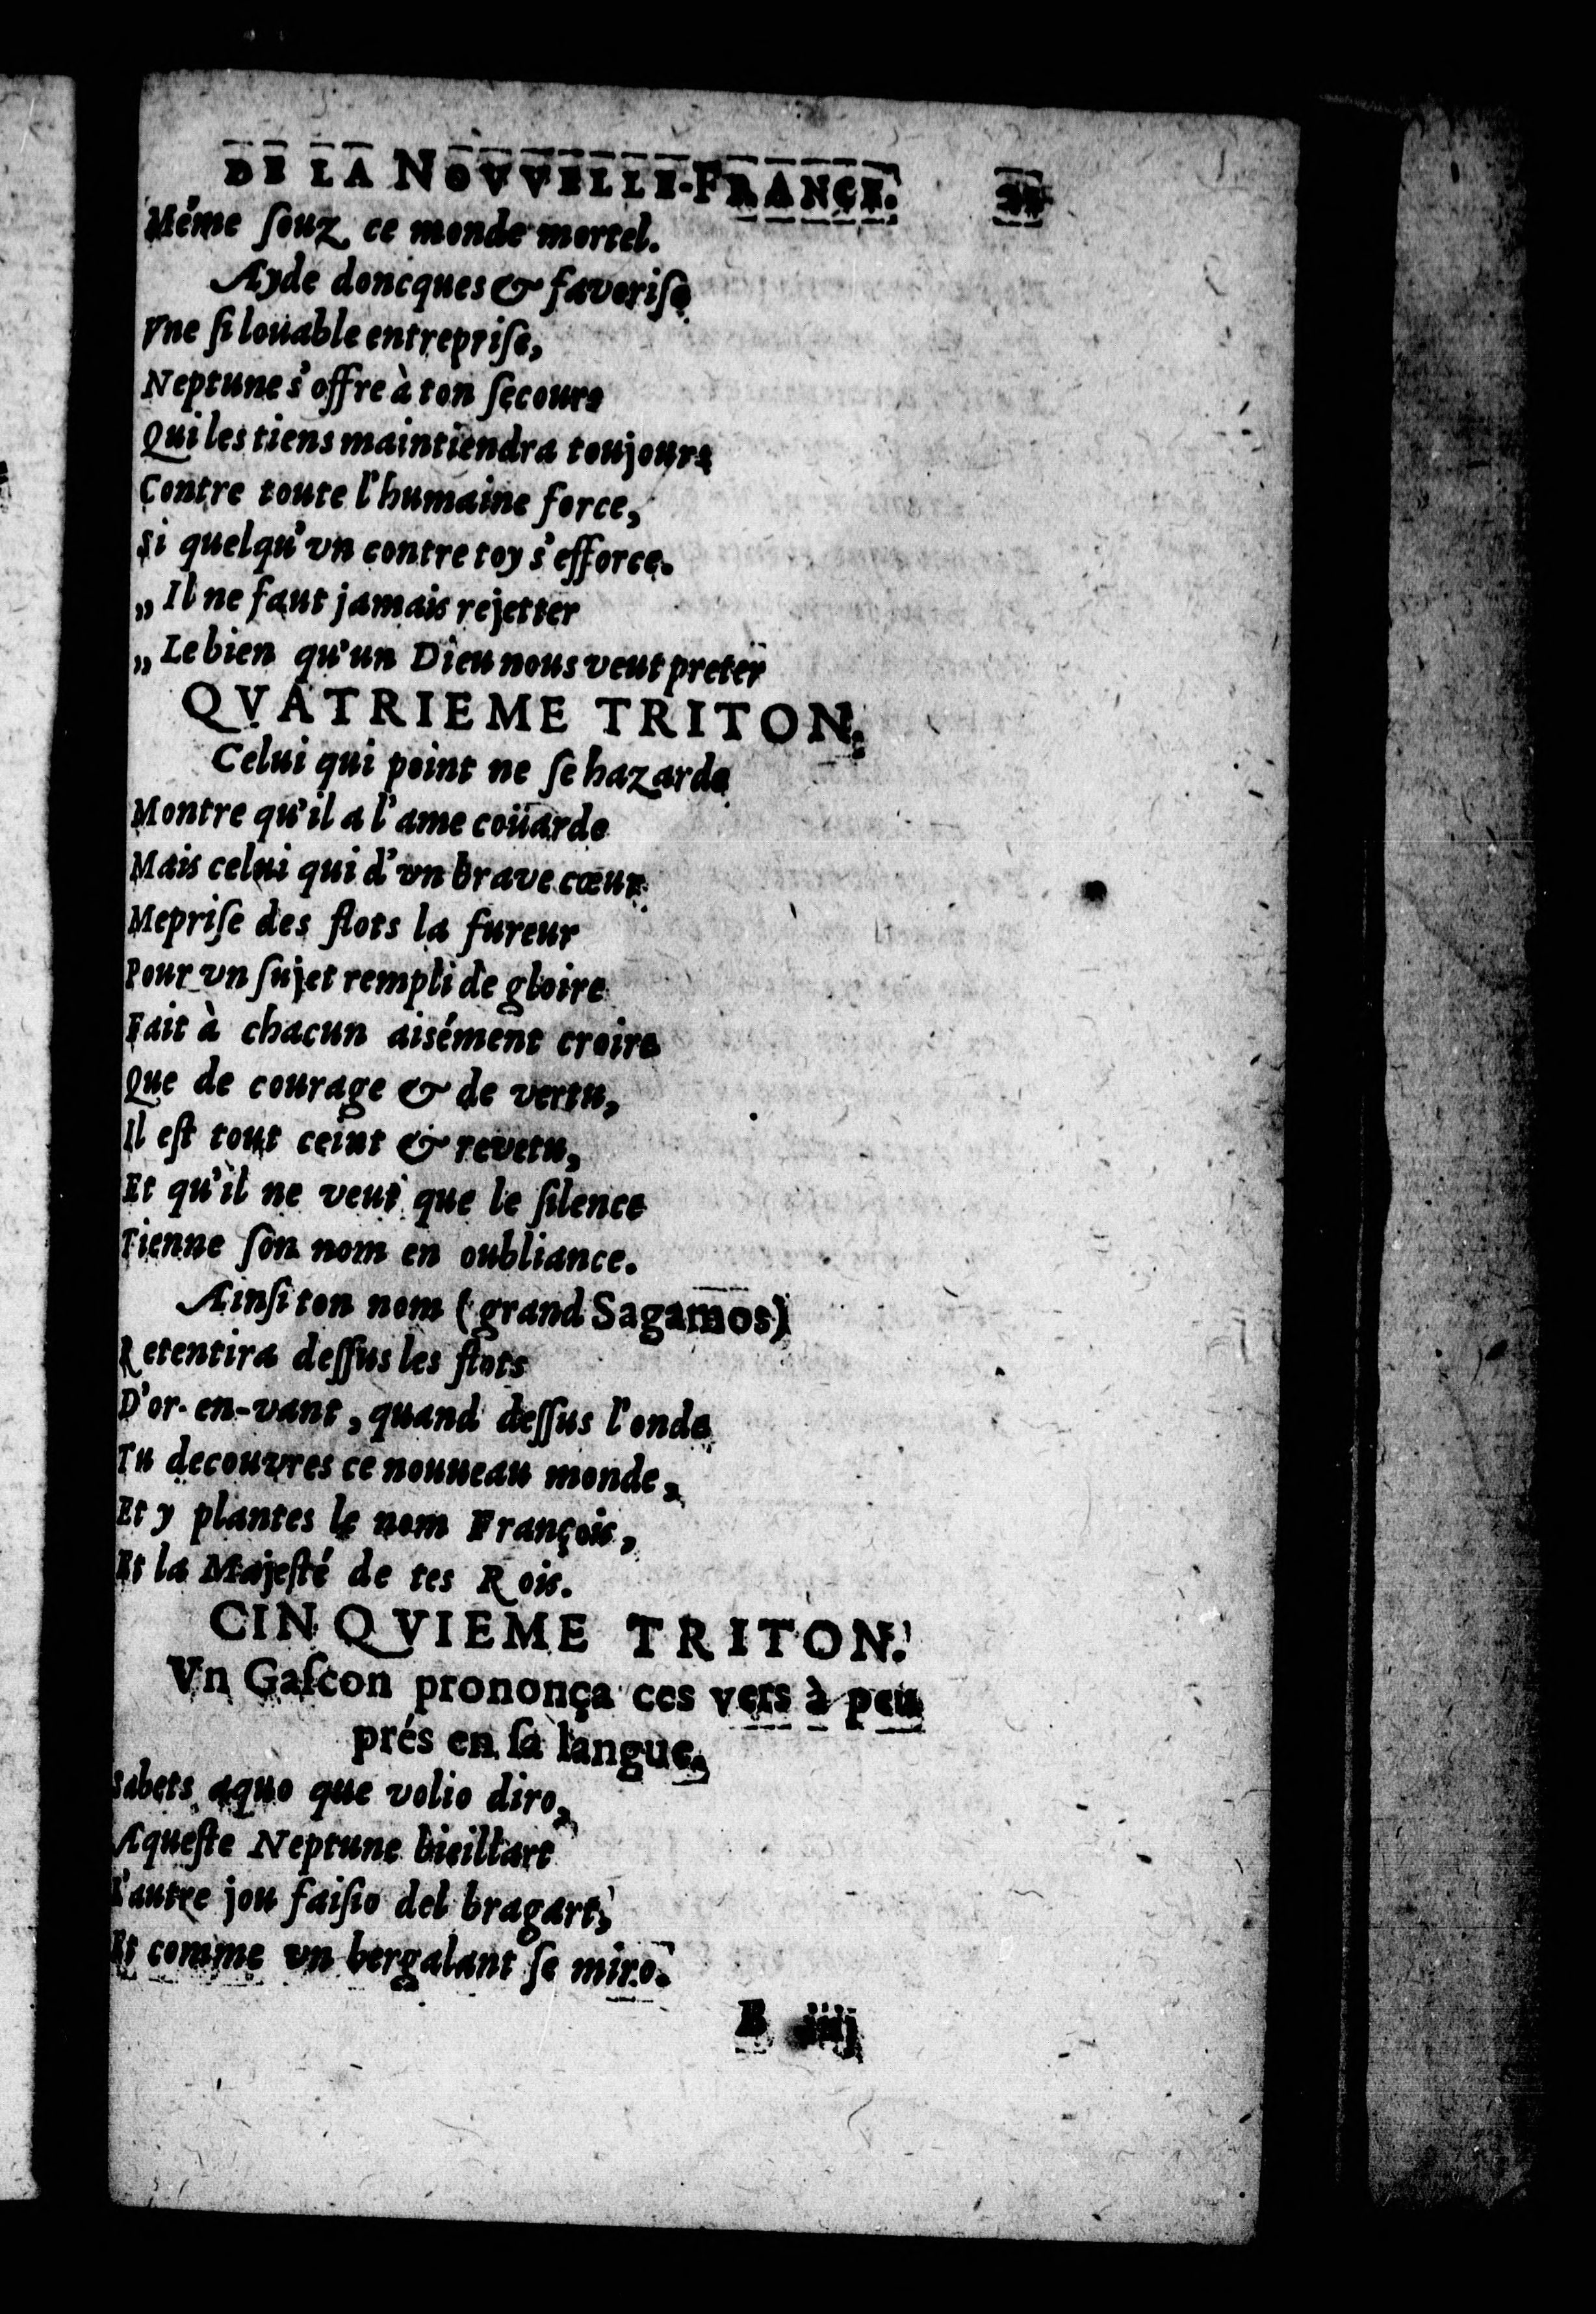 DE LA NOVVELLE-FRANCE.
Méme ſouz ce monde mortel.
Ayde doncques & favoriſe
Vne ſi loüable entrepriſe,
Neptune s'offre à ton ſecours
Qui les tiens maintiendra toujours
Contre toute l'humaine force,
Si quelqu'vn contre toy s'efforce.
„ Il ne faut jamais rejetter
„ Le bien qu'un Dieu nous veut preter
QVATRIEME TRITON.
Celui qui point ne ſe hazarde
Montre qu'il a l'ame coüarde
Mais celui qui d'vn brave cœur
Mepriſe des flots la fureur
Pour vn ſujet rempli de gloire
Fait à chacun aisément croire
Que de courage & de vertu,
Il eſt tout ceint & revetu,
Et qu'il ne veut que le ſilence
Tienne ſon nom en oubliance.
Ainſi ton nom (grand Sagamos)
Retentira deſſus les flots
D'or-en-vant, quand deſſus l'onde
Tu decouvres ce nouueau monde,
Et y plantes le nom François,
Et la Majeſté de tes Rois.
CINQVIEME TRITON.
Vn Gaſcon prononça ces vers à peu
prés en ſa langue.
Sabets aquo que volio diro,
Aqueſte Neptune bieillart
L'autre jou faiſio del bragart,
Et comme vn bergalant ſe miro.
B iiij